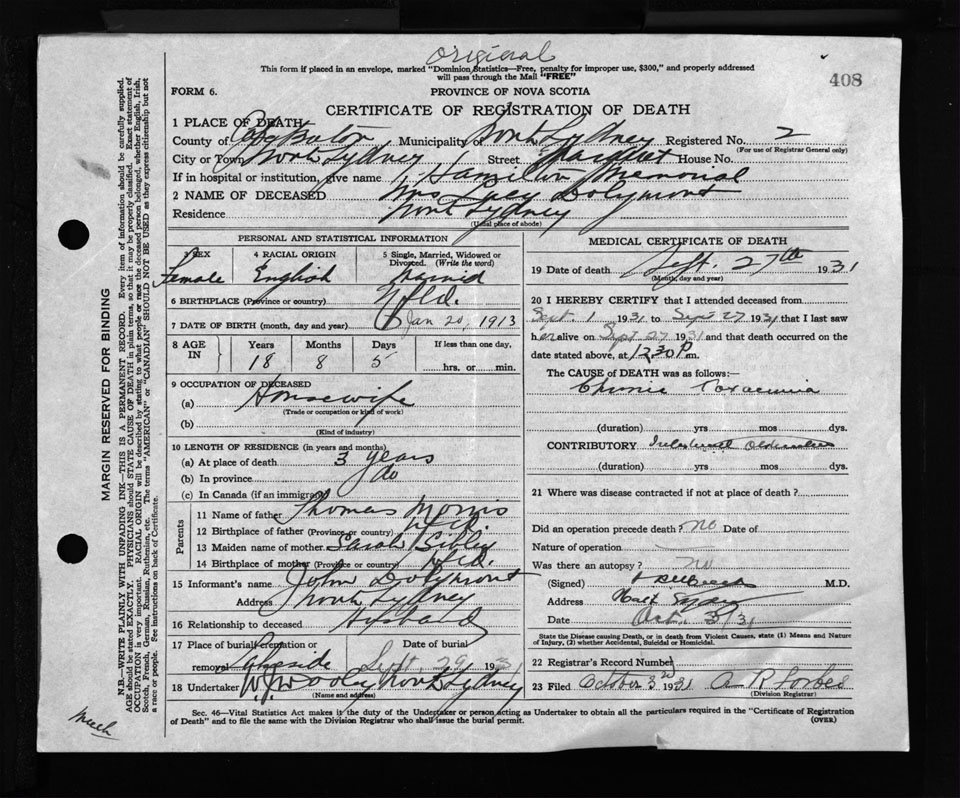 Original
This form if placed in an envelope, marked "Dominion Statistics—Free, penalty for improper use, $300," and properly addressed
will pass through the Mail "FREE"
408
FORM 6.
PROVINCE OF NOVA SCOTIA
CERTIFICATE OF REGISTRATION OF DEATH
1 PLACE OF DEATH
County of Cape Breton Municipality North Sydney Registered No. 2
(For use of Registrar General only)
City or Town North Sydney Street House No.
If in hospital or institution, give name Hamilton Memorial
2 NAME OF DECEASED Mrs
Residence North Sydney
(Usual place of abode)
PERSONAL AND STATISTICAL INFORMATION
3 SEX 4 RACIAL ORIGIN 5 Single, Married, Widowed or
Divorced. (Write the word)
Female English Married
6 BIRTHPLACE (Province or country) Nfld.
7 DATE OF BIRTH (month, day and year) Jan 20, 1913
8 AGE IN Years Months Days If less than one day,
18 8 5 hrs. or min.
9 OCCUPATION OF DECEASED
(a) Housewife
(Trade or occupation or kind of work)
(b)
(Kind of industry)
10 LENGTH OF RESIDENCE (in years and months)
(a) At place of death 3 years
(b) In province do
(c) In Canada (if an immigrant)
Parents
11 Name of father Thomas Morris
12 Birthplace of father (Province or country) Nfld.
13 Maiden name of mother Sarah Sibley
14 Birthplace of mother (Province or country) Nfld.
15 Informant's name John
Address North Sydney
16 Relationship to deceased Husband
17 Place of burial, cremation or Date of burial
removal Lakeside Sept. 29 1931
18 Undertaker W. J. Dooley North Sydney
(Name and address)
MEDICAL CERTIFICATE OF DEATH
19 Date of death Sept. 27th 1931
(Month, day and year)
20 I HEREBY CERTIFY that I attended deceased from
Sept. 1 1931 to Sept 27 1931 that I last saw
her alive on Sept 27 1931 and that death occurred on the
date stated above, at 12.30 P.m.
The CAUSE of DEATH was as follows:
Chronic Toxaemia
(duration) yrs mos dys.
CONTRIBUTORY Intestinal
(duration) yrs mos dys.
21 Where was disease contracted if not at place of death?
Did an operation precede death? no Date of
Nature of operation
Was there an autopsy? no
(Signed) M.D.
Address North Sydney
Date Oct. 3/31
State the Disease causing Death, or in death from Violent Causes, state (1) Means and Nature
of Injury, (2) whether Accidental, Suicidal or Homicidal.
22 Registrar's Record Number
23 Filed October 3rd 1931 A R Forbes
(Division Registrar)
Sec. 46—Vital Statistics Act makes it the duty of the Undertaker or person acting as Undertaker to obtain all the particulars required in the "Certificate of Registration
of Death" and to file the same with the Division Registrar who shall issue the burial permit.
(OVER)
MARGIN RESERVED FOR BINDING
N.B.—WRITE PLAINLY WITH UNFADING INK—THIS IS A PERMANENT RECORD. Every item of information should be carefully supplied.
AGE should be stated EXACTLY. PHYSICIANS should STATE CAUSE OF DEATH in plain terms, so that it may be properly classified. Exact statement of
OCCUPATION is very important. RACIAL ORIGIN will be described by stating to what people or race the deceased person belonged, whether English, Irish,
Scotch, French, German, Russian, Ruthenian, etc. The terms "AMERICAN" or "CANADIAN" SHOULD NOT BE USED as they express citizenship but not
a race or people. See instructions on back of Certificate.